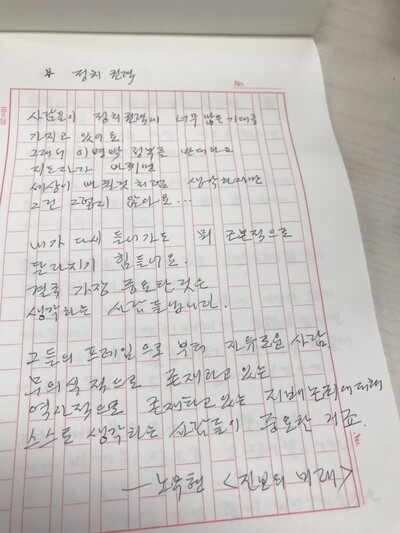 * 정치권력
No.
사람들이 정치권력에 너무 많은 기대를
가지고 있어요
그래서 이명박 정부를 반대하고
지도자가 바뀌면
세상이 바뀔것 처럼 생각하지만
그런 그렇지 않아요...
내가 다시 들어가도 뭐 근본적으로
달라지기 힘들어요.
결국 가장 중요한 것은
생각하는 사람들입니다.
그들의 프레임으로 부터 자유로운 사람
무의식적으로 존재하고 있는
역사적으로 존재하고 있는 지배논리에 대해
스스로 생각하는 사람들이 중요한 거죠.
— 노무현 <진보의 미래>
10×20